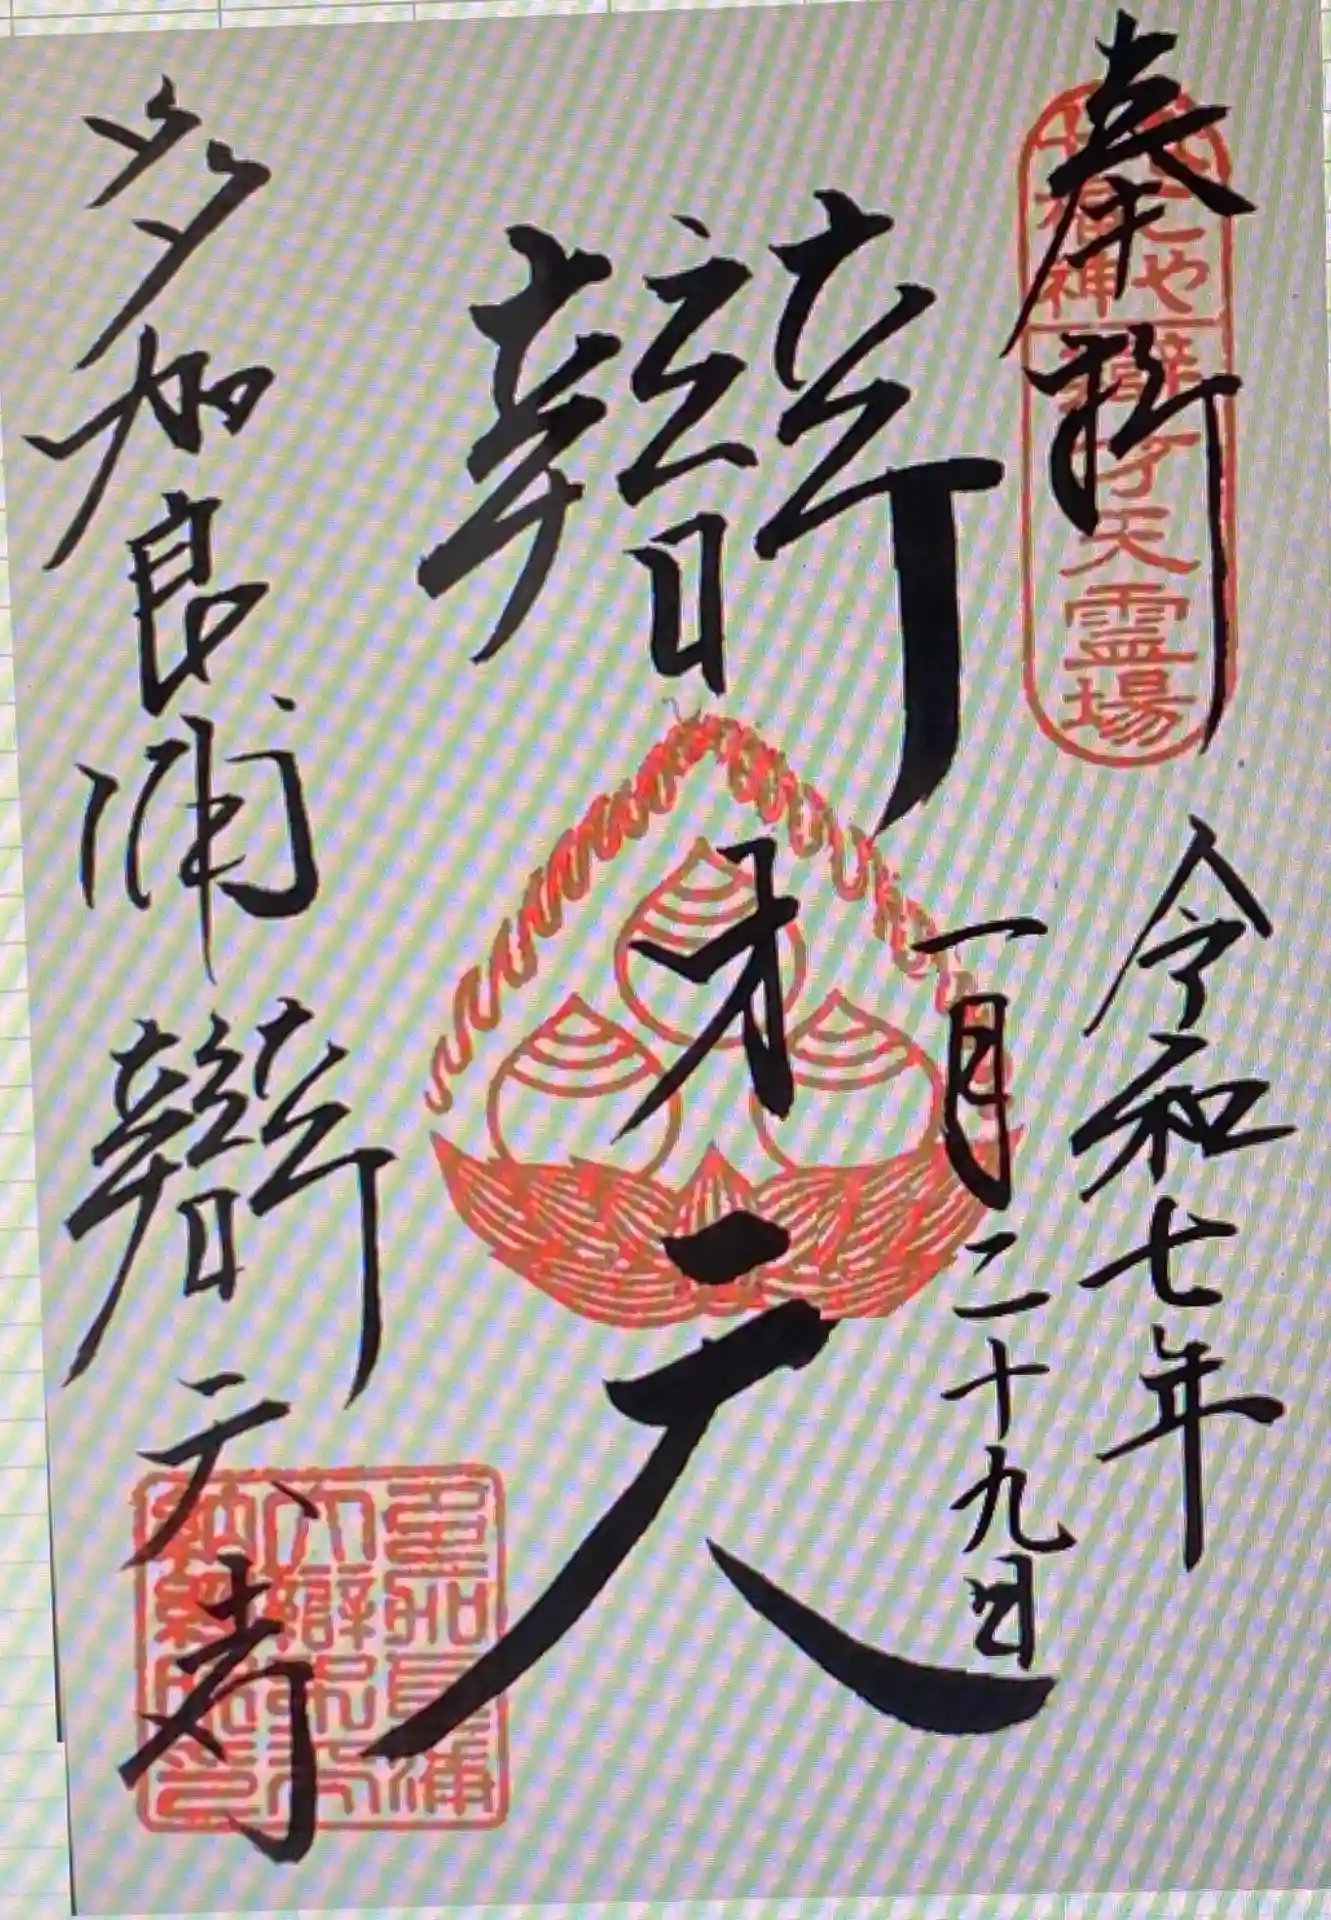 奉拝
なごや
七福神
辯才天霊場
令和七年
一月二十九日
辯才天
多加良浦辯天寺